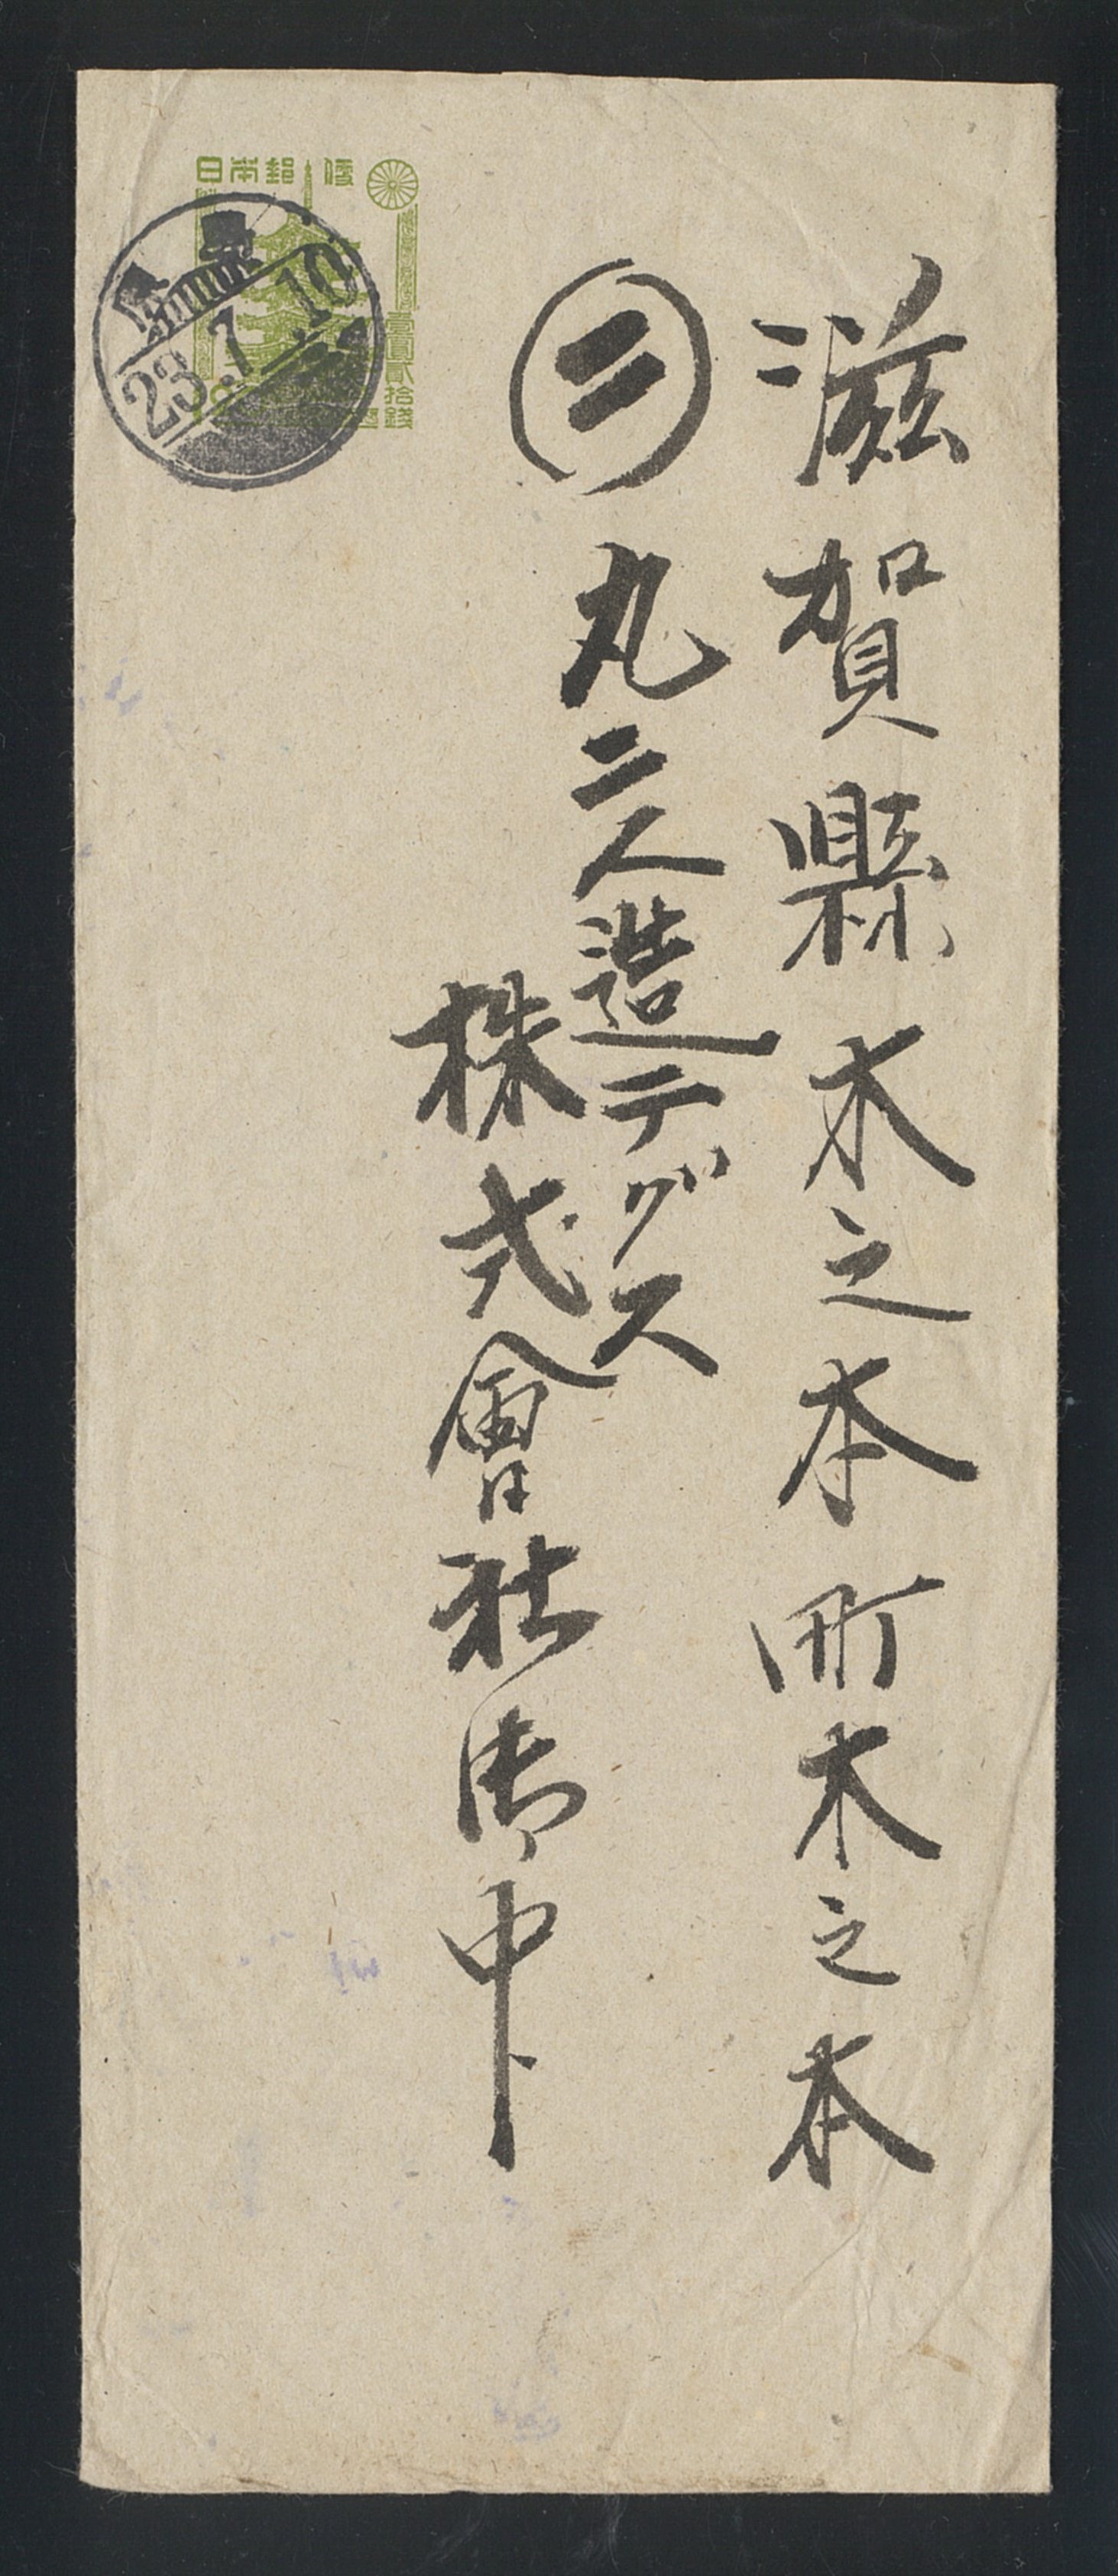 滋賀縣木之本町木之本
㊁
丸二人造テグス
株式會社御中
日本郵便
壹圓貳拾錢
23.7.10